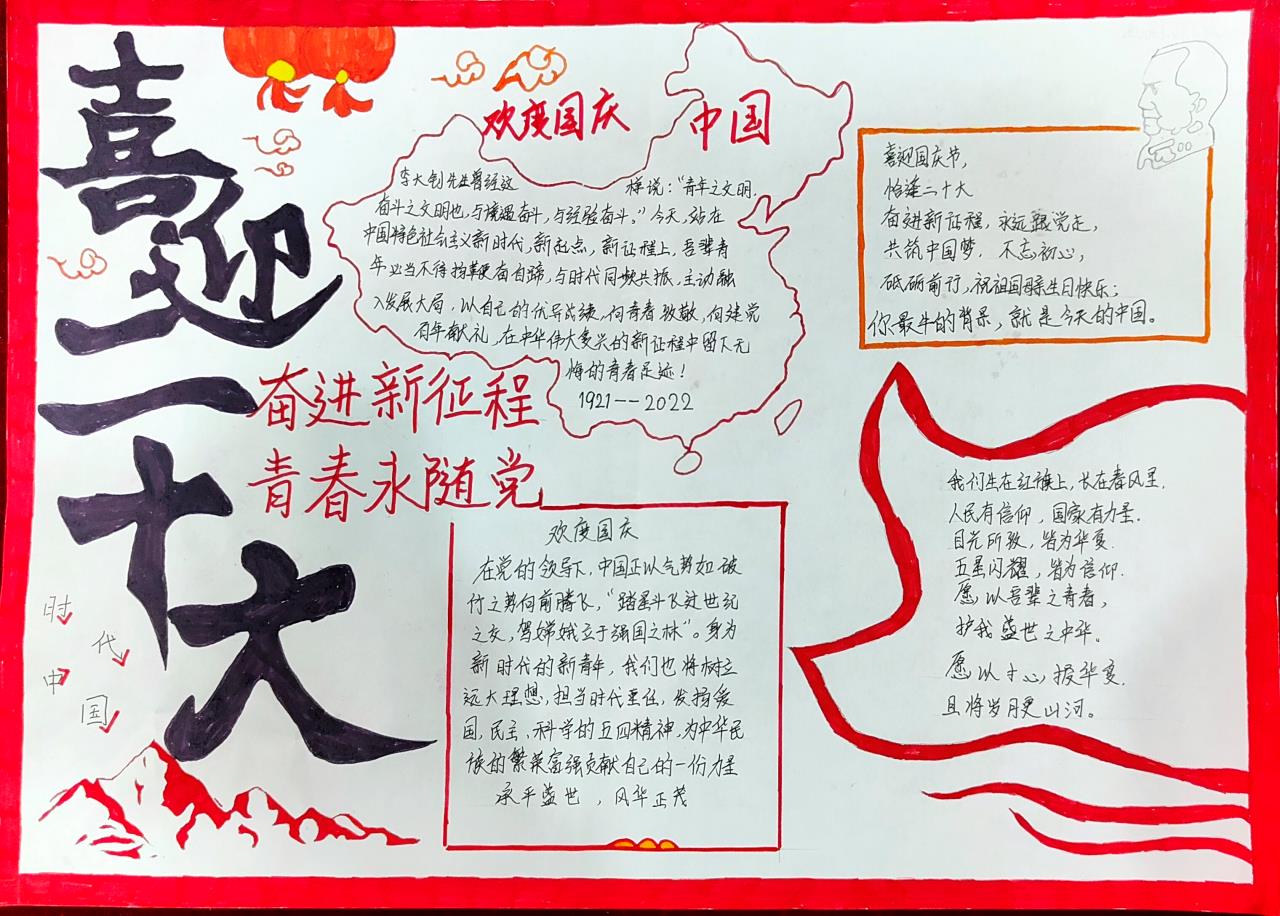 喜迎二十大
欢度国庆
中国
李大钊先生曾经这 样说："青年之文明,
奋斗之文明也,与境遇奋斗,与经验奋斗。"今天,站在
中国特色社会主义新时代,新起点,新征程上,吾辈青
年必当不待扬鞭奋自蹄,与时代同频共振,主动融
入发展大局,以自己的优异战绩,向青春致敬,向建党
百年献礼,在中华伟大复兴的新征程中留下无
悔的青春足迹!
1921--2022
喜迎国庆节,
恰逢二十大
奋进新征程,永远跟党走,
共筑中国梦,不忘初心,
砥砺前行,祝祖国母亲生日快乐;
你最牛的背景,就是今天的中国。
奋进新征程
青春永随党
欢度国庆
在党的领导下,中国正以气势如破
竹之势向前腾飞,"踏星斗飞过世纪
之交,驾嫦娥立于强国之林"。身为
新时代的新青年,我们也将树立
远大理想,担当时代重任,发扬爱
国,民主、科学的五四精神,为中华民
族的繁荣富强贡献自己的一份力量
承平盛世,风华正茂
我们生在红旗上,长在春风里,
人民有信仰,国家有力量.
目光所致,皆为华夏.
五星闪耀,皆为信仰.
愿以吾辈之青春,
护我盛世之中华。
愿以寸心报华夏.
且将岁月更山河。
时
代
中
国